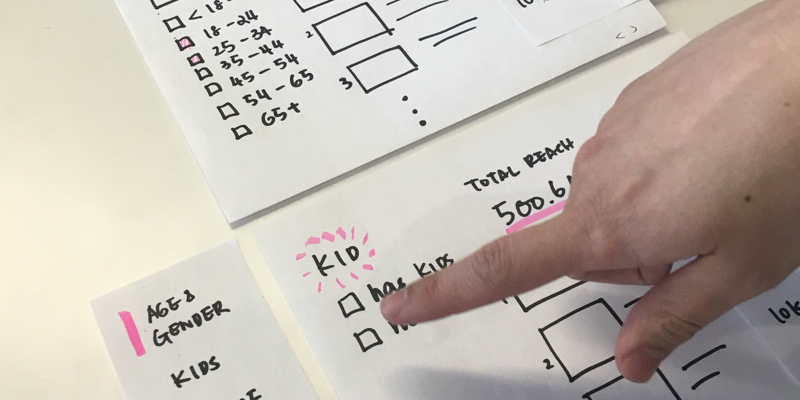 < 18
18-24
25-34
35-44
45-54
54-65
65+
2
3
< >
TOTAL REACH
500.6
KID
has KIDS
2
10k
AGE &
GENDER
KIDS